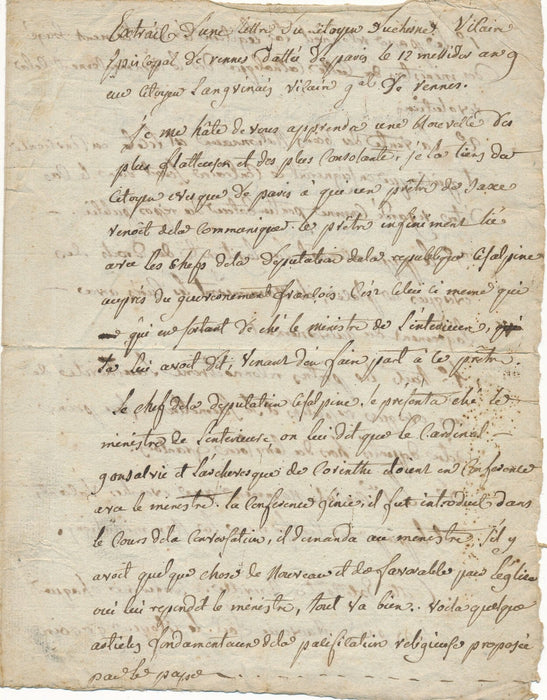 Extrait d'une lettre du citoyen duchene Vilain
Episcopal de rennes dattée de paris le 12 messidor an 9
au Citoyen Langvinais Vilain g.al De rennes.
je me hâte de vous apprendre une Nouvelle des
plus flatteuses et des plus Consolante, je la tiens du
Citoyen evesque de paris à que un prêtre de
venoit dela Communique. le prêtre infiniment lié
avec les Chefs dela deputation dela republique Cisalpine
aupres du gouvernement francois C'est Celui ci meme qui
qui en sortant de ché le ministre de l'interieur,
la lui avoit dit, venant d'en fair part à le prêtre.
le Chef dela deputation Cisalpine, le presenta ché le
ministre de l'interieure on lui dit que le Cardinal
gonsalvie et l'archevesque de Corinthe étoient en Conference
avec le ministre. la Conference finie, il fut introduit dans
le Cours dela Conversation, il demanda au ministre s'il y
avoit quelque chose de Nouveau et de favorable pour l'eglise
oui lui repondit le ministre, tout va bien. voila quelque
articles fondamentaux dela pacification religieuse proposée
par le pape